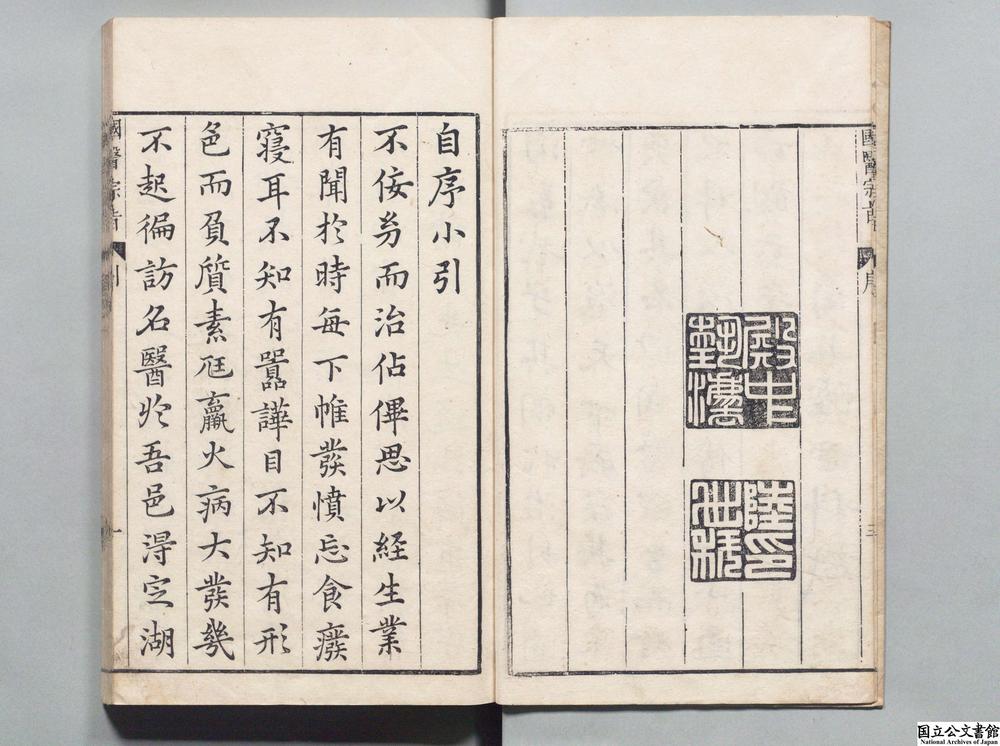 國醫宗旨
序
三
殿中
執灋
陸印
世科
自序小引
不佞㓜而治佔俾思以経生業
有聞於時每下帷發憤忘食癈
寢耳不知有囂譁目不知有形
色而負質素尫羸火病大發幾
不起徧訪名醫於吾邑淂定湖
國醫宗旨
引
一
国立公文書館
National Archives of Japan